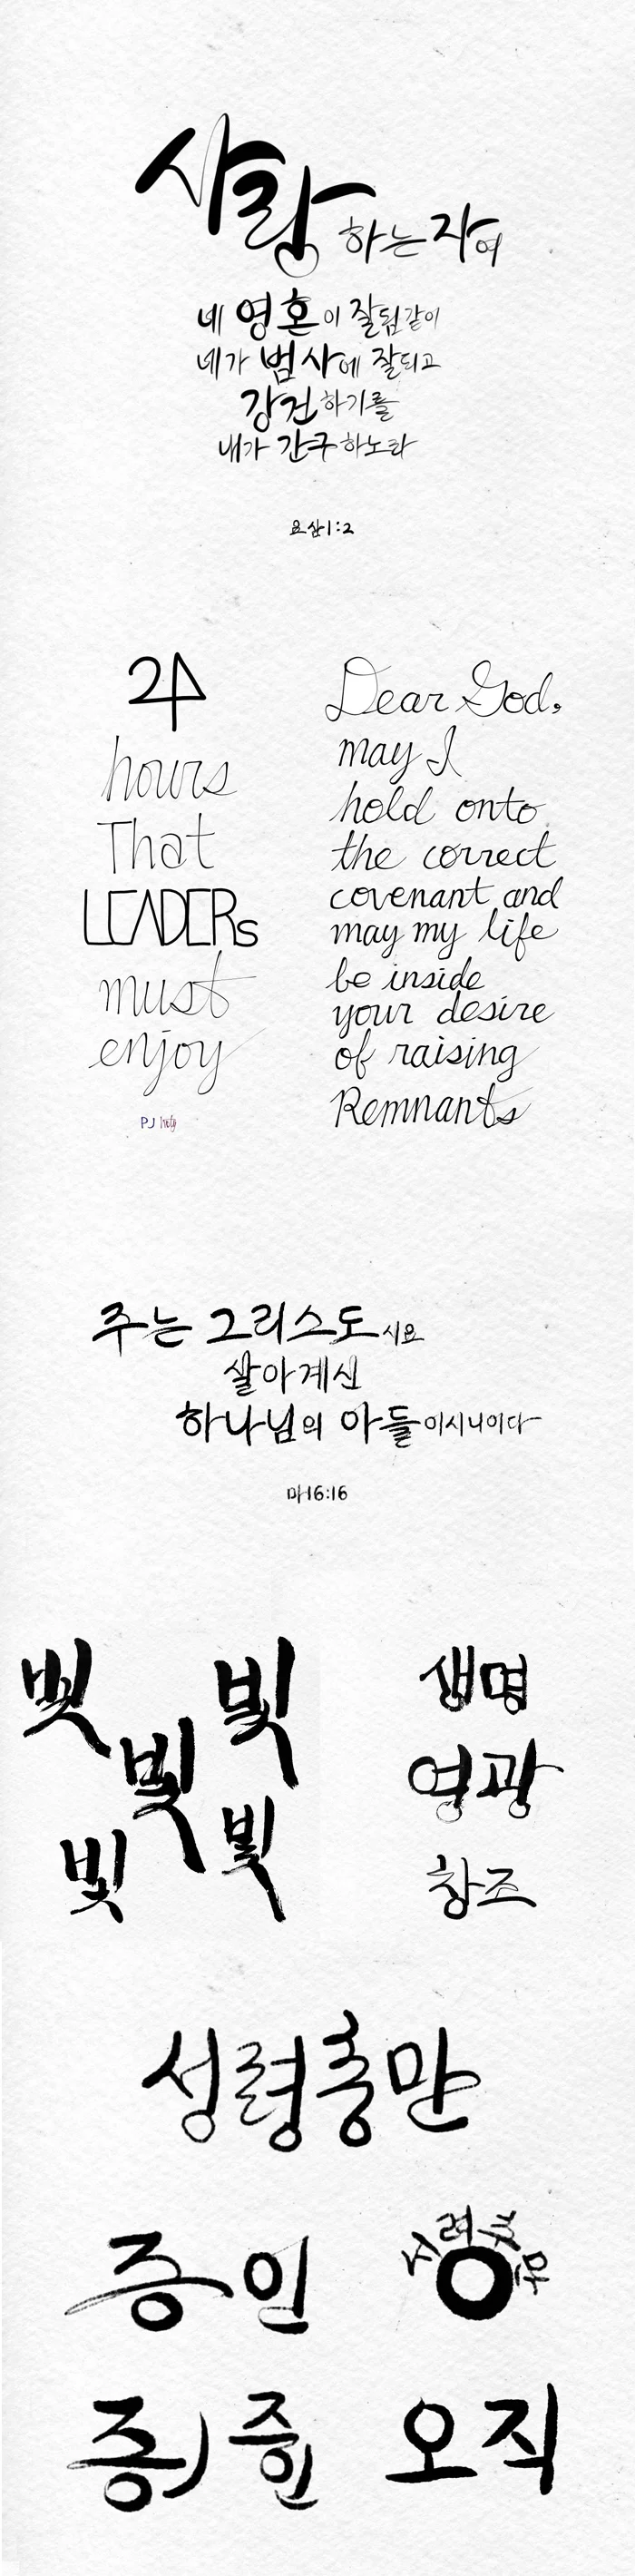 사랑하는자여
네 영혼이 잘됨같이
네가 범사에 잘되고
강건하기를
내가 간구하노라
요삼1:2
24
hours
That
LEADERs
must
enjoy
PJ
Dear God,
may I
hold onto
the correct
covenant and
may my life
be inside
your desire
of raising
Remnants
주는 그리스도시요
살아계신
하나님의 아들이시니이다
마16:16
빛 빛
빛
빛 빛
생명
영광
창조
성령충만
증인
증인 증인
오직